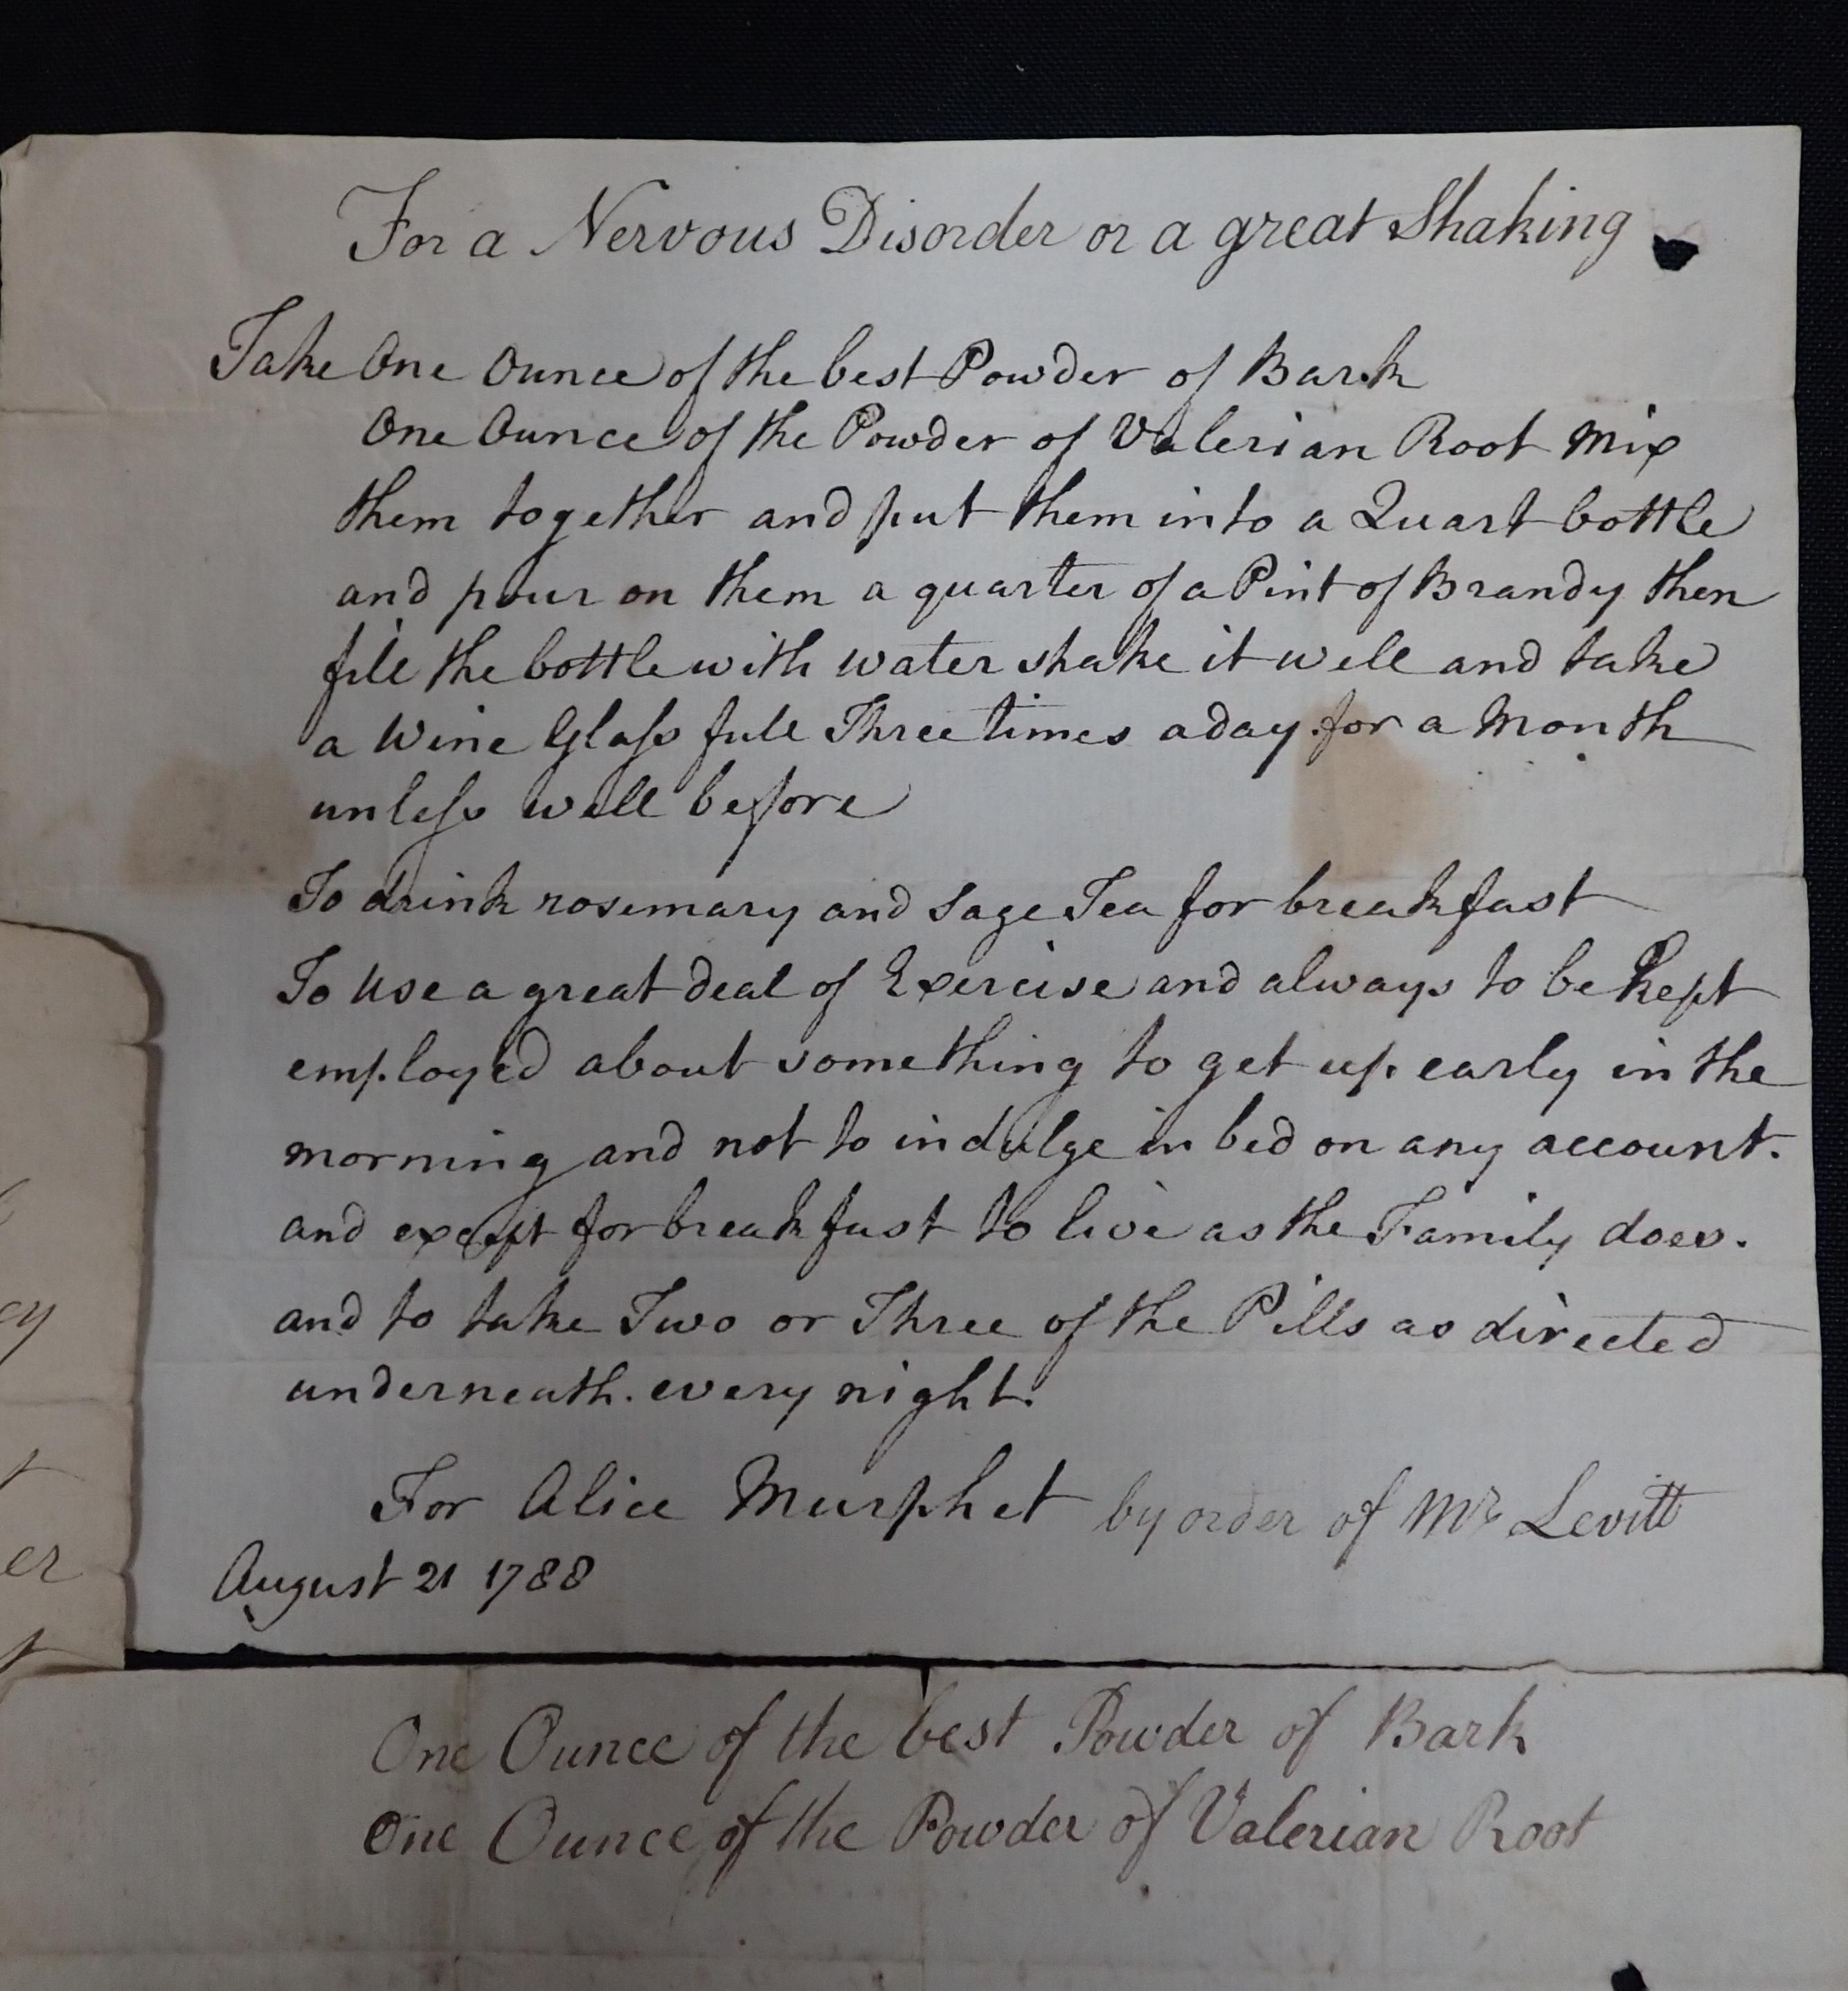 For a Nervous Disorder or a great Shaking
Take One Ounce of the best Powder of Bark
One Ounce of the Powder of Valerian Root Mix
them together and put them into a Quart bottle
and pour on them a quarter of a Pint of Brandy then
fill the bottle with water shake it well and take
a Wine Glaſs full Three times a day for a Month
unleſs well before
To drink rosemary and Sage Tea for breakfast
To Use a great deal of Exercise and always to be Kept
employed about something to get up early in the
morning and not to indulge in bed on any account.
and except for breakfast to live as the Family does.
and to take Two or Three of the Pills as directed
underneath. every night.
For Alice Murphet by order of Mr Levitt
August 21 1788
ey
er
One Ounce of the best Powder of Bark
One Ounce of the Powder of Valerian Root